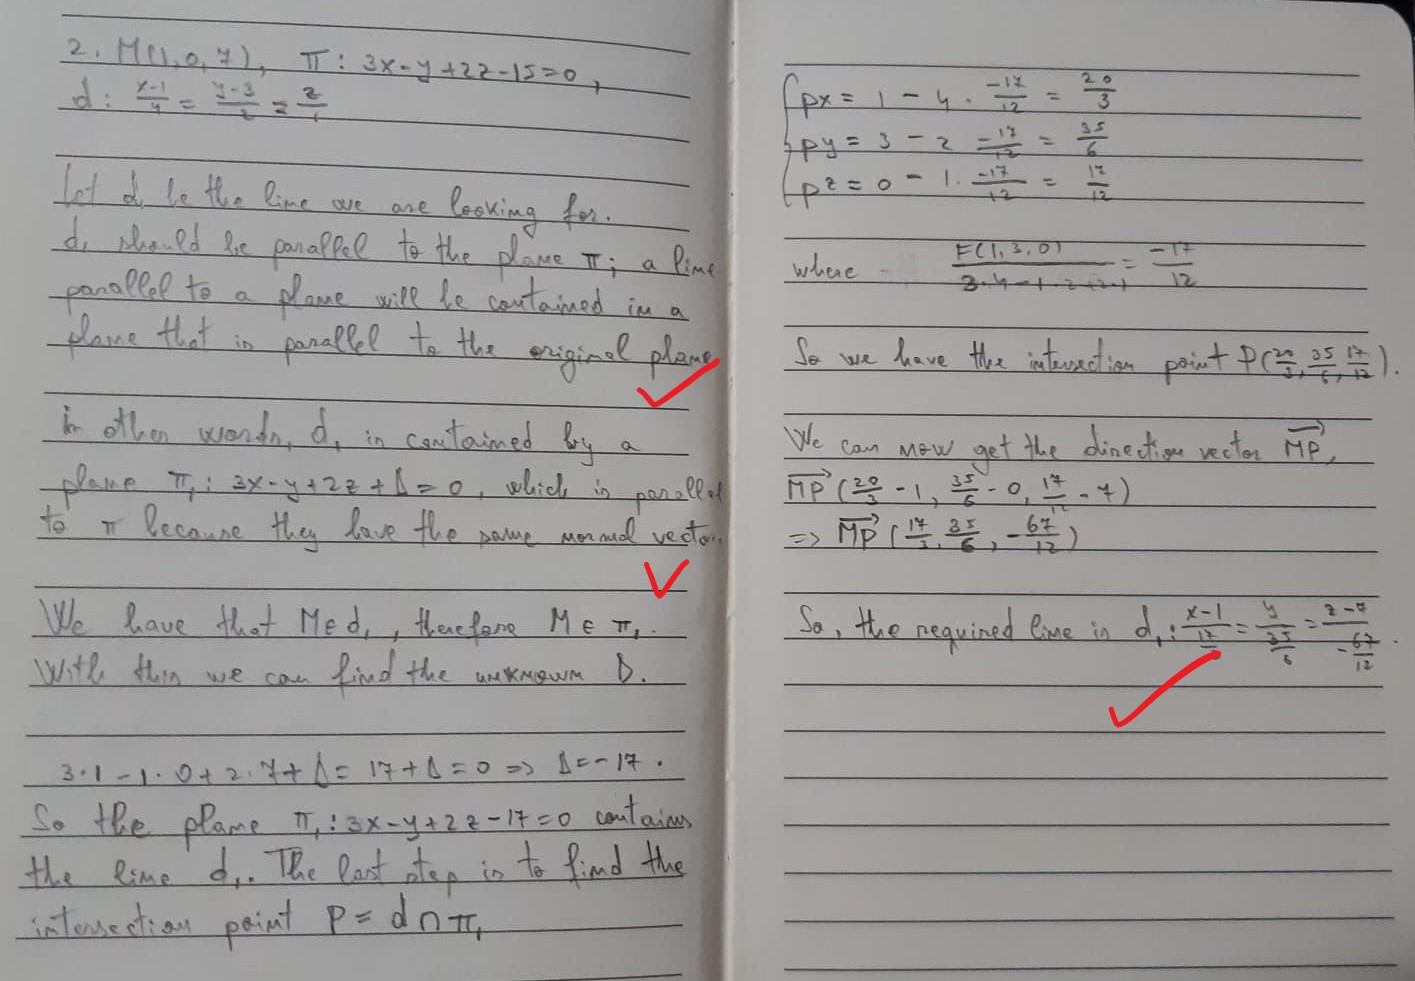 2. M(1,0,7), π: 3x-y+2z-15=0,
d: x-1/4 = y-3/2 = z/1
Let d₁ be the line we are looking for.
d₁ should be parallel to the plane π; a line
parallel to a plane will be contained in a
plane that is parallel to the original plane
in other words, d₁ is contained by a
plane π₁: 3x-y+2z+D=0, which is parallel
to π because they have the same normal vector.
We have that M∈d₁, therefore M∈π₁.
With this we can find the unknown D.
3·1-1·0+2·7+D=17+D=0 => D=-17.
So the plane π₁: 3x-y+2z-17=0 contains
the line d₁. The last step is to find the
intersection point P = d∩π₁
px = 1 - 4 · -17/12 = 20/3
py = 3 - 2 -17/12 = 35/6
pz = 0 - 1 · -17/12 = 17/12
where F(1,3,0)/3·4-1·2+2·1 = -17/12
So we have the intersection point P(20/3, 35/6, 17/12).
We can now get the direction vector MP,
MP(20/3 - 1, 35/6 - 0, 17/12 - 7)
=> MP(17/3, 35/6, -67/12)
So, the required line is d₁: x-1/17/3 = y/35/6 = z-7/-67/12.